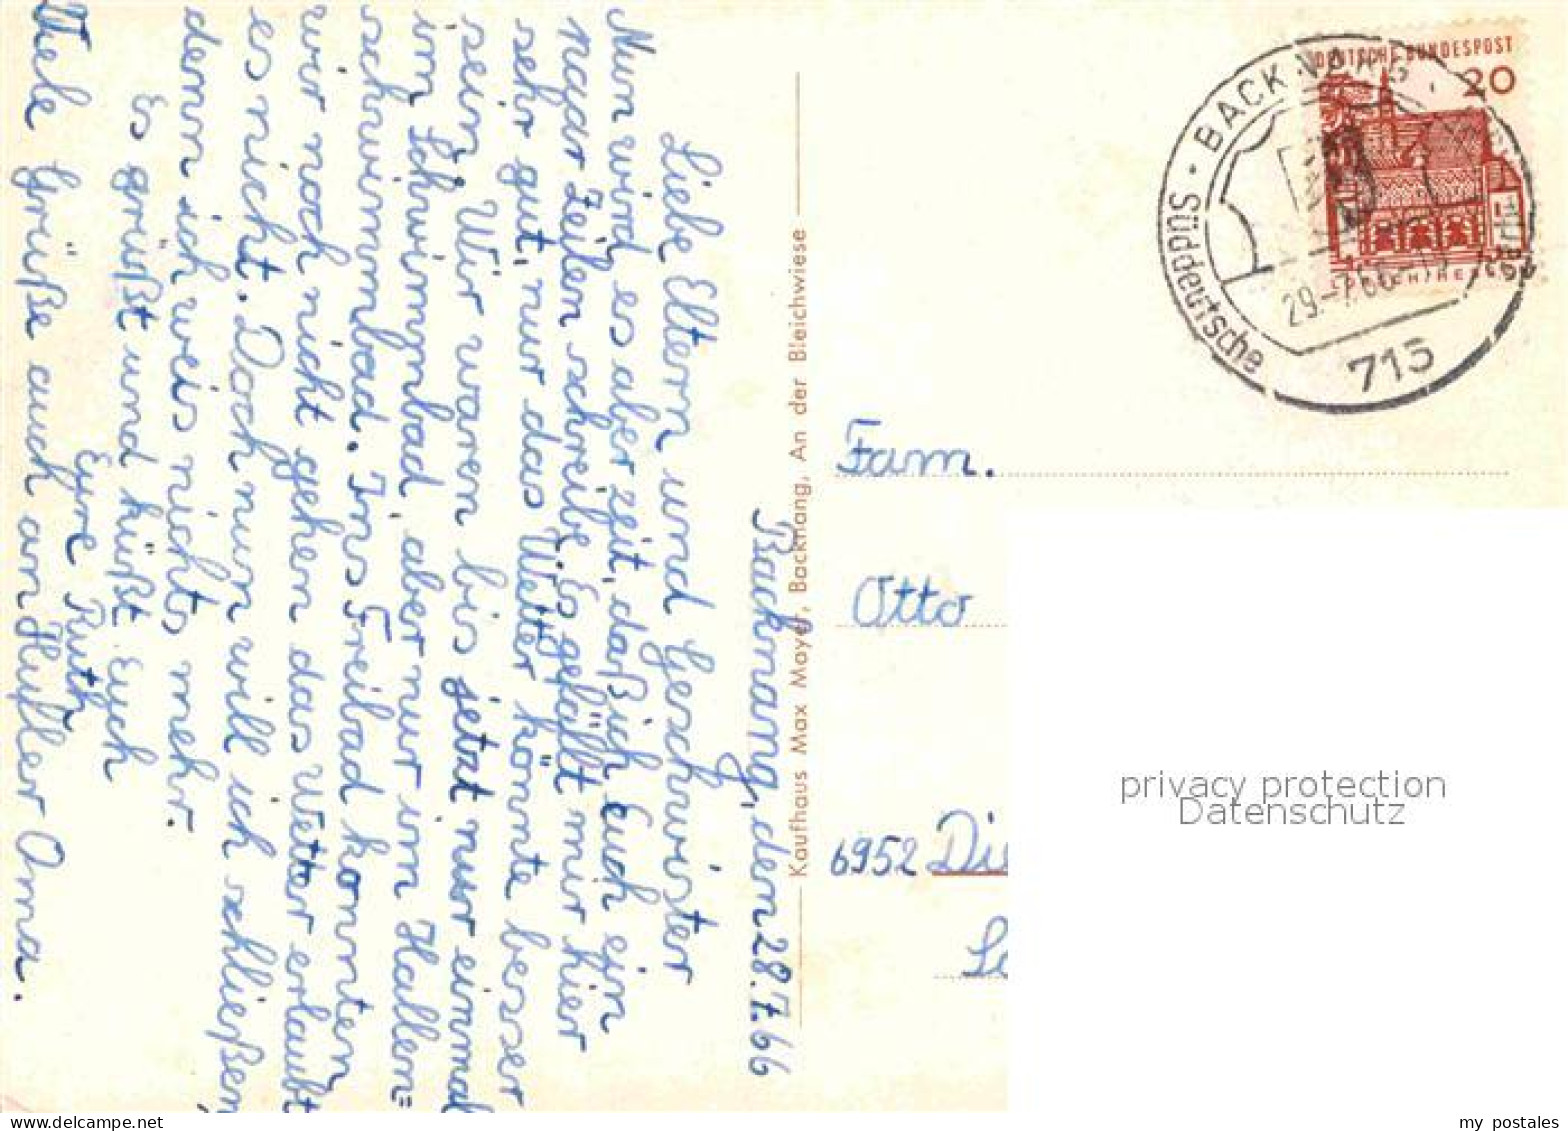 Backnang, den 28.7.66
Liebe Eltern und Geschwister
Nun wird es aber zeit, daß ich Euch ein
paar Zeilen schreibe. Es gefällt mir hier
sehr gut, nur das Wetter könnte besser
sein. Wir waren bis jetzt nur einmal
im Schwimmbad, aber nur im Hallen=
schwimmbad. Ins Freibad konnten
wir noch nicht gehen das Wetter erlaubt
es nicht. Doch nun will ich schließen,
denn ich weis nichts mehr.
Es grüßt und küßt Euch
Eure Ruth
Viele Grüße auch an Oma.
Kaufhaus Max Mayer, Backnang, An der Bleichwiese
DEUTSCHE BUNDESPOST
20
LORSCH/HESSEN
BACKNANG
Süddeutsche
29.-7.66
715
Fam.
Otto
6952 Die
privacy protection
Datenschutz
my postales